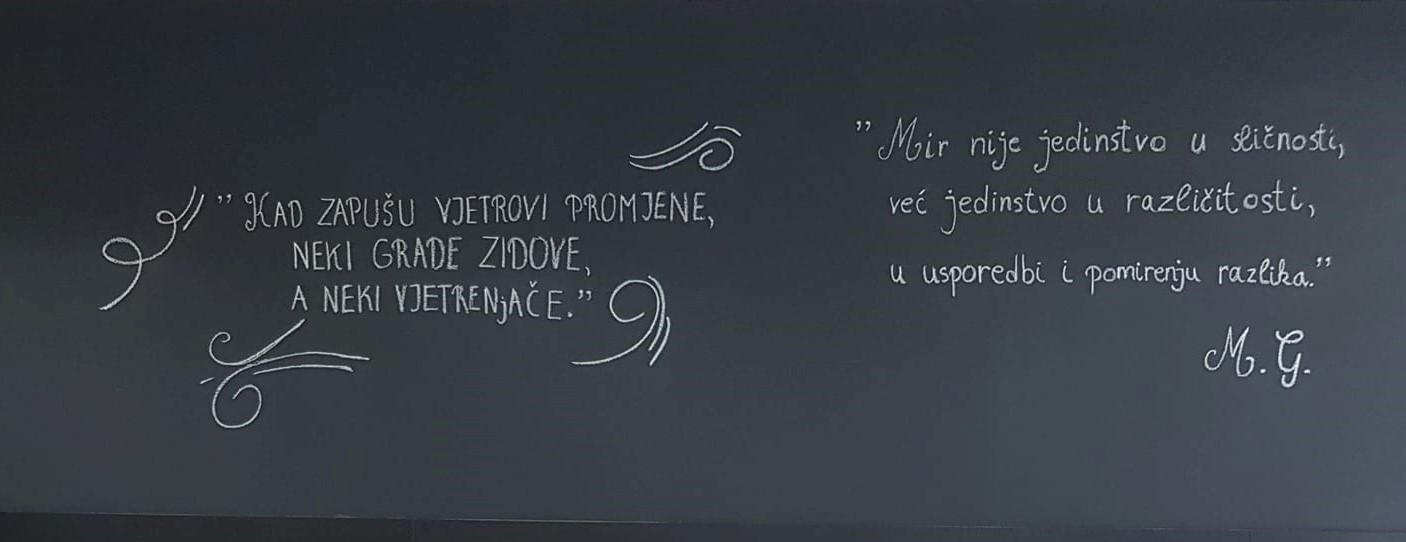 ”KAD ZAPUŠU VJETROVI PROMJENE,
NEKI GRADE ZIDOVE,
A NEKI VJETRENjAČE.”
”Mir nije jedinstvo u sličnosti,
već jedinstvo u različitosti,
u usporedbi i pomirenju razlika.”
M. G.